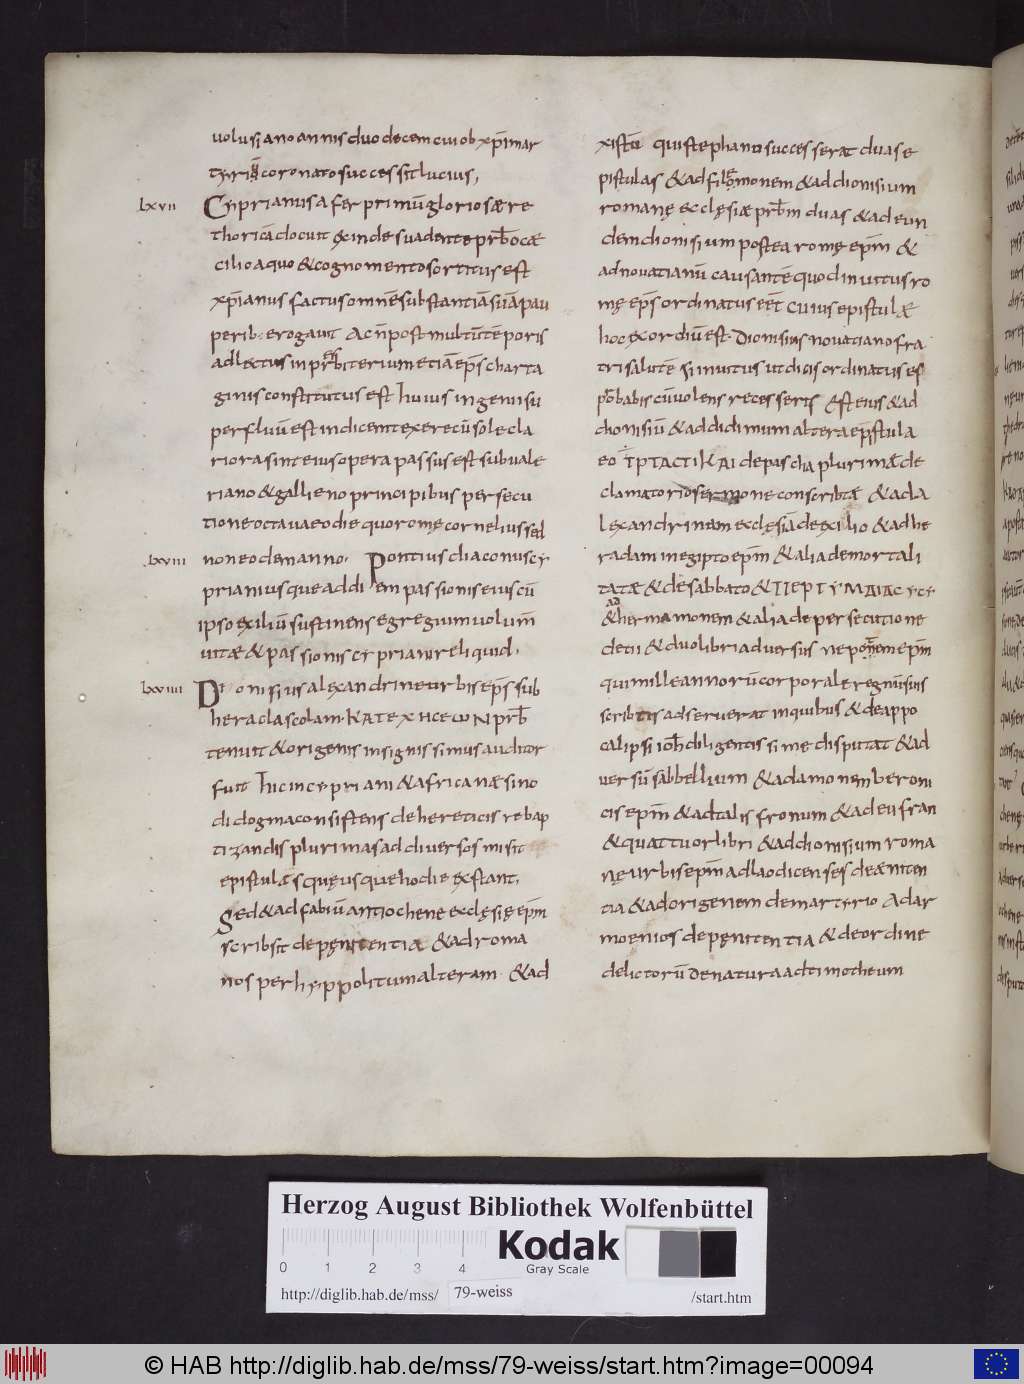 uolusiano annis duodecem cui ob xp̄i mar
tyriū coronato successit lucius,
lxvii Cyprianus afer primū gloriosæ re
thoricā docuit exinde suadente prb̄o cæ
cilio a quo & cognomento sortitus est
xp̄ianus factus omnē substantiā suā pau
perib: erogauit Ac n̄ post multū tēporis
adlectus in prb̄iterium etiā ep̄s charta
ginis constitutus est huius ingenii su
perfluū est indicem texere cū sole cla
riora sint eius opera passus est sub uale
riano & gallieno principibus persecu
tione octaua eo die quo romę cornelius sed
lxviii non eodem anno. Pontius diaconus cy
prianus que ad diem passionis eius cū
ipso exiliū sustinens egregium uolum̄
uitæ & passionis cypriani reliquid.
lxviiii Dionisius alexandrine urbis ep̄s sub
heracla scolam ΚΑΤΕΧΗCΕωΝ prb̄
tenuit & origenis insignissimus auditor
fuit hic in cypriani & africanæ sino
di dogma consistens de hereticis rebap
tizandis plurimas ad diuersos misit
epistulas quę usque hodie exstant.
Sed & ad fabiū antiochene ecclęsię ep̄m
scribsit de pęnitentia & ad roma
nos per hyppolitum alteram & ad
xistū qui stephano successerat duas e
pistulas & ad filemonem & ad dionisium
romanę ecclęsiæ prb̄m duas & ad eun
dem dionisium postea romę ep̄m &
ad nouatianū causantē quod inuitus ro
mę ep̄s ordinatus eēt cuius epistulæ
hoc exordiū est. Dionisius nouatiano fra
tri salutē si inuitus ut dicis ordinatus es
probabis cū uolens recesseris Est eius & ad
dionisiū & ad didimum altera epistula
eo ΪΡΤΑCΤΙΚΑΙ de pascha plurimæ de
clamatorio sermone conscribtæ & ad a
lexandrinam ecclęsiā de exilio & ad he
radam in egipto ep̄m & alia de mortali
tatæ & de sabbato & ΠΕΡΙ ΓΥΜΔΙΑCΥCΥ
& ad hermamonem & alia de persecutione
decii & duo libri aduersus nepotem ep̄m
qui mille annorū corporale regnū suis
scribtis adseruerat in quibus & de appo
calipsi ioh̄ diligentissime disputat & ad
uersū sabbellium & ad amonem beroni
cis ep̄m & ad talis fronum & ad eufran
& quattuor libri & ad dionisium roma
nę urbis ep̄m ad laodicenses de æniten
tia & ad origenem de martyrio Ad ar
moenios de pęnitentia & de ordine
delictorū de natura ad timotheum
Herzog August Bibliothek Wolfenbüttel
0 1 2 3 4
Kodak
Gray Scale
http://diglib.hab.de/mss/ 79-weiss /start.htm
© HAB http://diglib.hab.de/mss/79-weiss/start.htm?image=00094